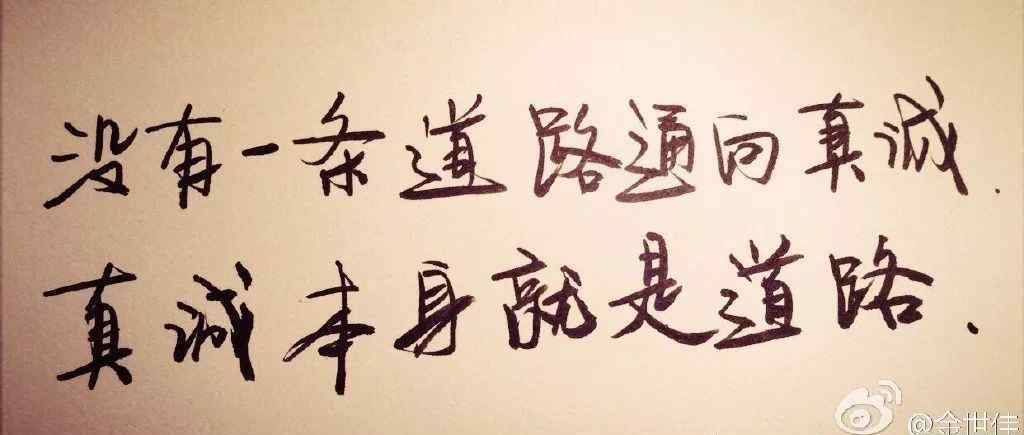 没有一条道路通向真诚.
真诚本身就是道路.
@金世佳